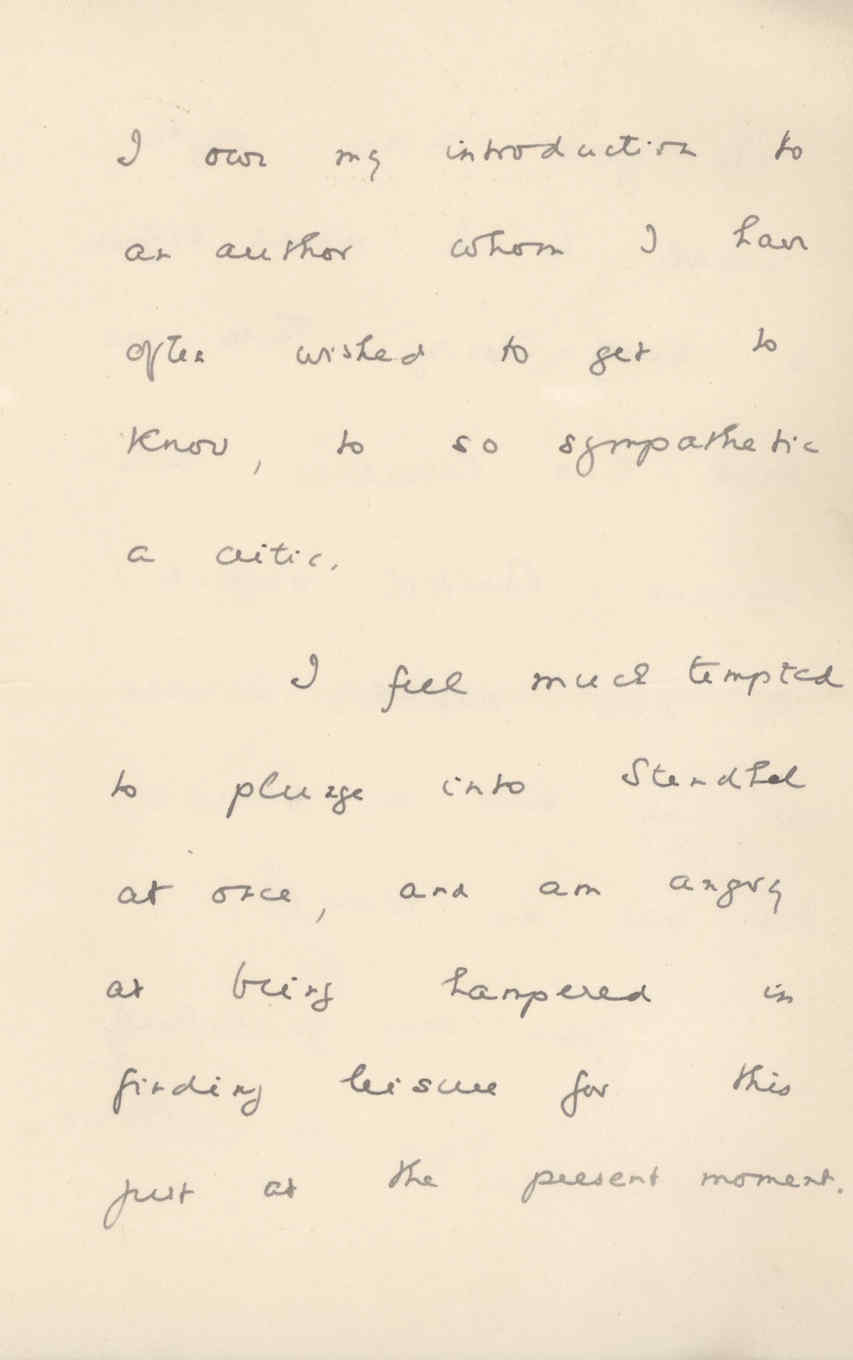 I owe my introduction to
an author whom I have
often wished to get to
know, to so sympathetic
a critic.
I feel much tempted
to plunge into Stendhal
at once, and am angry
at being hampered in
finding leisure for this
just at the present moment.